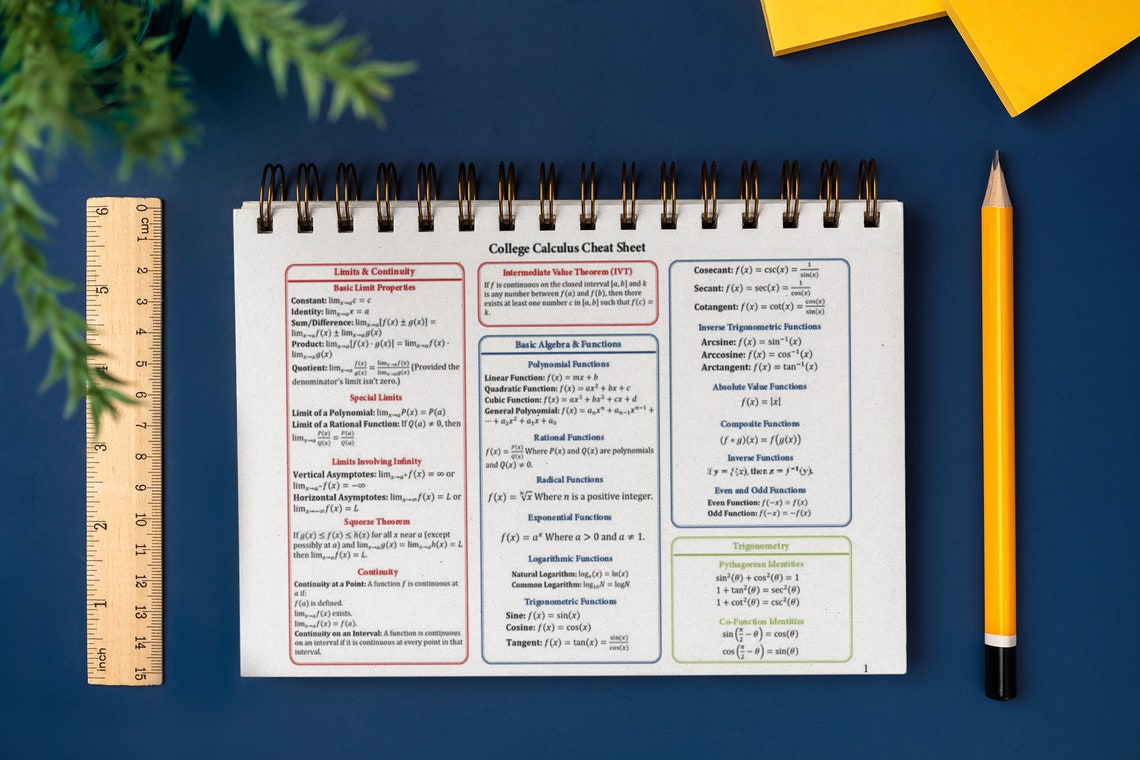 College Calculus Cheat Sheet
Limits & Continuity
Basic Limit Properties
Constant: limₓ→ₐc = c
Identity: limₓ→ₐx = a
Sum/Difference: limₓ→ₐ[f(x) ± g(x)] =
limₓ→ₐf(x) ± limₓ→ₐg(x)
Product: limₓ→ₐ[f(x) · g(x)] = limₓ→ₐf(x) ·
limₓ→ₐg(x)
Quotient: limₓ→ₐ f(x)/g(x) = limₓ→ₐf(x)/limₓ→ₐg(x) (Provided the
denominator's limit isn't zero.)
Special Limits
Limit of a Polynomial: limₓ→ₐP(x) = P(a)
Limit of a Rational Function: If Q(a) ≠ 0, then
limₓ→ₐ P(x)/Q(x) = P(a)/Q(a)
Limits Involving Infinity
Vertical Asymptotes: limₓ→ₐ⁺f(x) = ∞ or
limₓ→ₐ⁺f(x) = −∞
Horizontal Asymptotes: limₓ→∞f(x) = L or
limₓ→−∞f(x) = L
Squeeze Theorem
If g(x) ≤ f(x) ≤ h(x) for all x near a (except
possibly at a) and limₓ→ₐg(x) = limₓ→ₐh(x) = L
then limₓ→ₐf(x) = L.
Continuity
Continuity at a Point: A function f is continuous at
a if:
f(a) is defined.
limₓ→ₐf(x) exists.
limₓ→ₐf(x) = f(a).
Continuity on an Interval: A function is continuous
on an interval if it is continuous at every point in that
interval.
Intermediate Value Theorem (IVT)
If f is continuous on the closed interval [a, b] and k
is any number between f(a) and f(b), then there
exists at least one number c in [a, b] such that f(c) =
k.
Basic Algebra & Functions
Polynomial Functions
Linear Function: f(x) = mx + b
Quadratic Function: f(x) = ax² + bx + c
Cubic Function: f(x) = ax³ + bx² + cx + d
General Polynomial: f(x) = aₙxⁿ + aₙ₋₁xⁿ⁻¹ +
⋯ + a₂x² + a₁x + a₀
Rational Functions
f(x) = P(x)/Q(x) Where P(x) and Q(x) are polynomials
and Q(x) ≠ 0.
Radical Functions
f(x) = ⁿ√x Where n is a positive integer.
Exponential Functions
f(x) = aˣ Where a > 0 and a ≠ 1.
Logarithmic Functions
Natural Logarithm: logₑ(x) = ln(x)
Common Logarithm: log₁₀N = logN
Trigonometric Functions
Sine: f(x) = sin(x)
Cosine: f(x) = cos(x)
Tangent: f(x) = tan(x) = sin(x)/cos(x)
Cosecant: f(x) = csc(x) = 1/sin(x)
Secant: f(x) = sec(x) = 1/cos(x)
Cotangent: f(x) = cot(x) = cos(x)/sin(x)
Inverse Trigonometric Functions
Arcsine: f(x) = sin⁻¹(x)
Arccosine: f(x) = cos⁻¹(x)
Arctangent: f(x) = tan⁻¹(x)
Absolute Value Functions
f(x) = |x|
Composite Functions
(f ∘ g)(x) = f(g(x))
Inverse Functions
If y = f(x), then x = f⁻¹(y).
Even and Odd Functions
Even Function: f(−x) = f(x)
Odd Function: f(−x) = −f(x)
Trigonometry
Pythagorean Identities
sin²(θ) + cos²(θ) = 1
1 + tan²(θ) = sec²(θ)
1 + cot²(θ) = csc²(θ)
Co-Function Identities
sin(π/2 − θ) = cos(θ)
cos(π/2 − θ) = sin(θ)
1
0 cm 1 2 3 4 5 6 7 8 9 10 11 12 13 14 15
inch 1 2 3 4 5 6